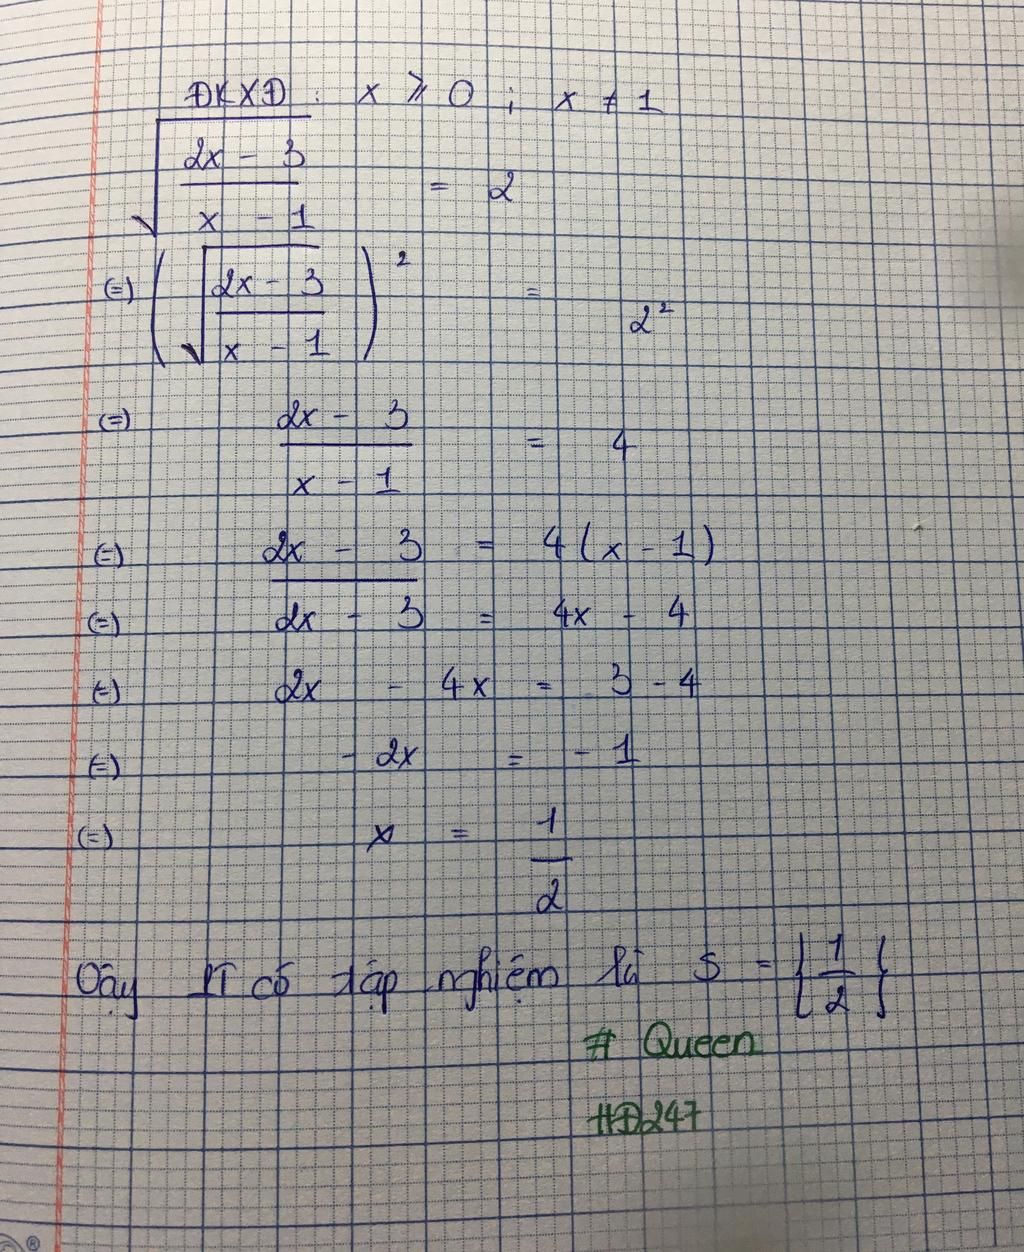 ĐKXĐ : x ≥ 0 ; x ≠ 1
√((2x - 3)/(x - 1)) = 2
(=) (√((2x - 3)/(x - 1)))² = 2²
(=) (2x - 3)/(x - 1) = 4
(=) 2x - 3 = 4(x - 1)
(=) 2x - 3 = 4x - 4
(=) 2x - 4x = 3 - 4
(=) - 2x = - 1
(=) x = 1/2
Vậy PT có tập nghiệm là S = {1/2}
# Queen
#Đ247
®